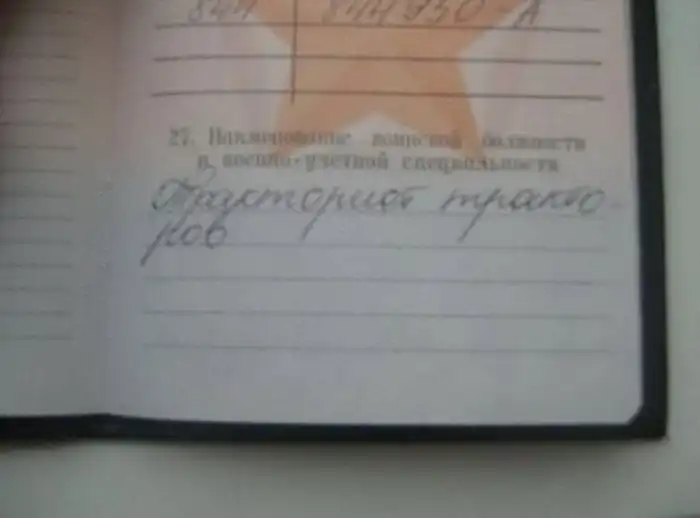 844 844930-А
27. Наименование воинской должности
и военно-учетной специальности
Тракторист тракто-
ров